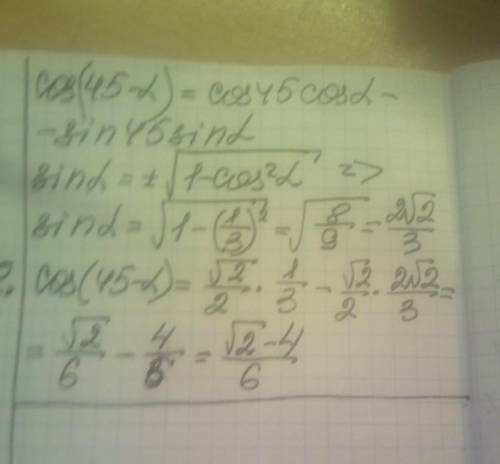 cos(45-α) = cos45 cosα -
- sin45 sinα
sinα = ± √(1-cos²α) =>
sinα = √(1-(1/3)²) = √(8/9) = 2√2/3
2. cos(45-α) = √2/2 · 1/3 - √2/2 · 2√2/3 =
= √2/6 - 4/6 = (√2-4)/6